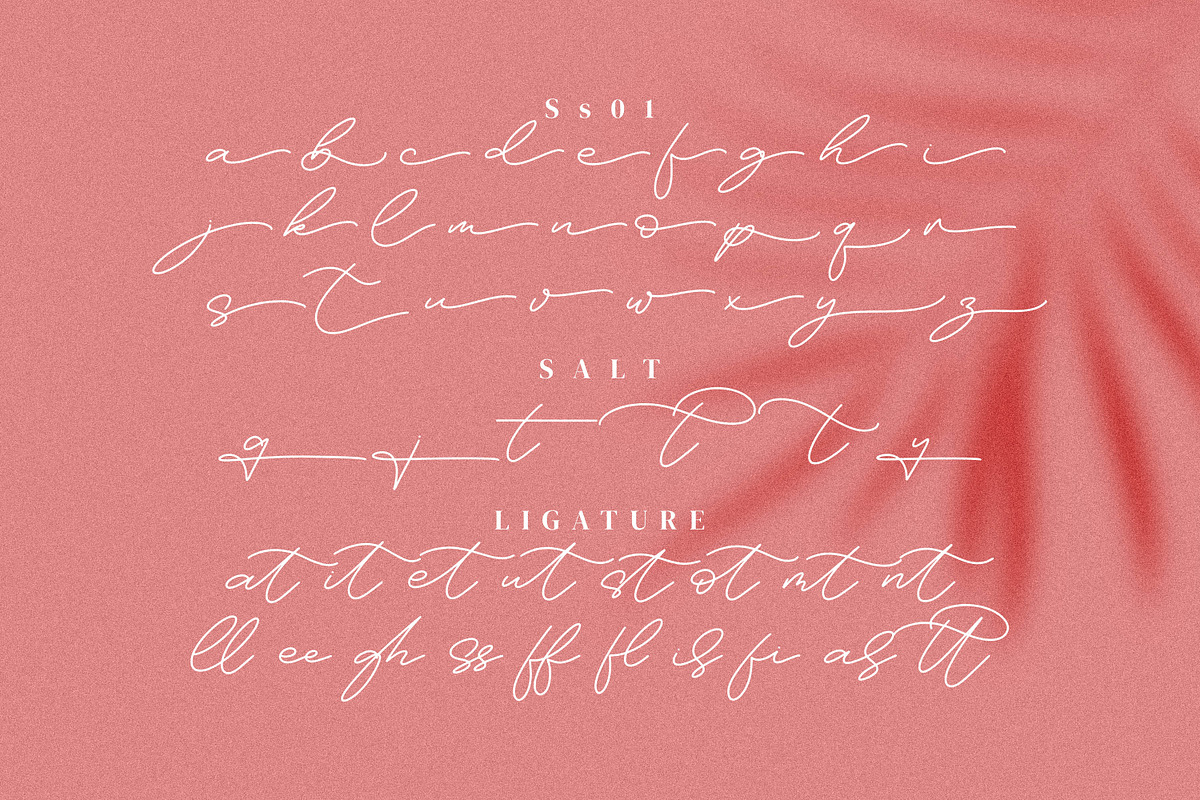 Ss01
a b c d e f g h i
j k l m n o p q r
s t u v w x y z
SALT
g j t t t y
LIGATURE
at it et ut st ot mt nt
ll ee gh ss ff fl is fi as tt